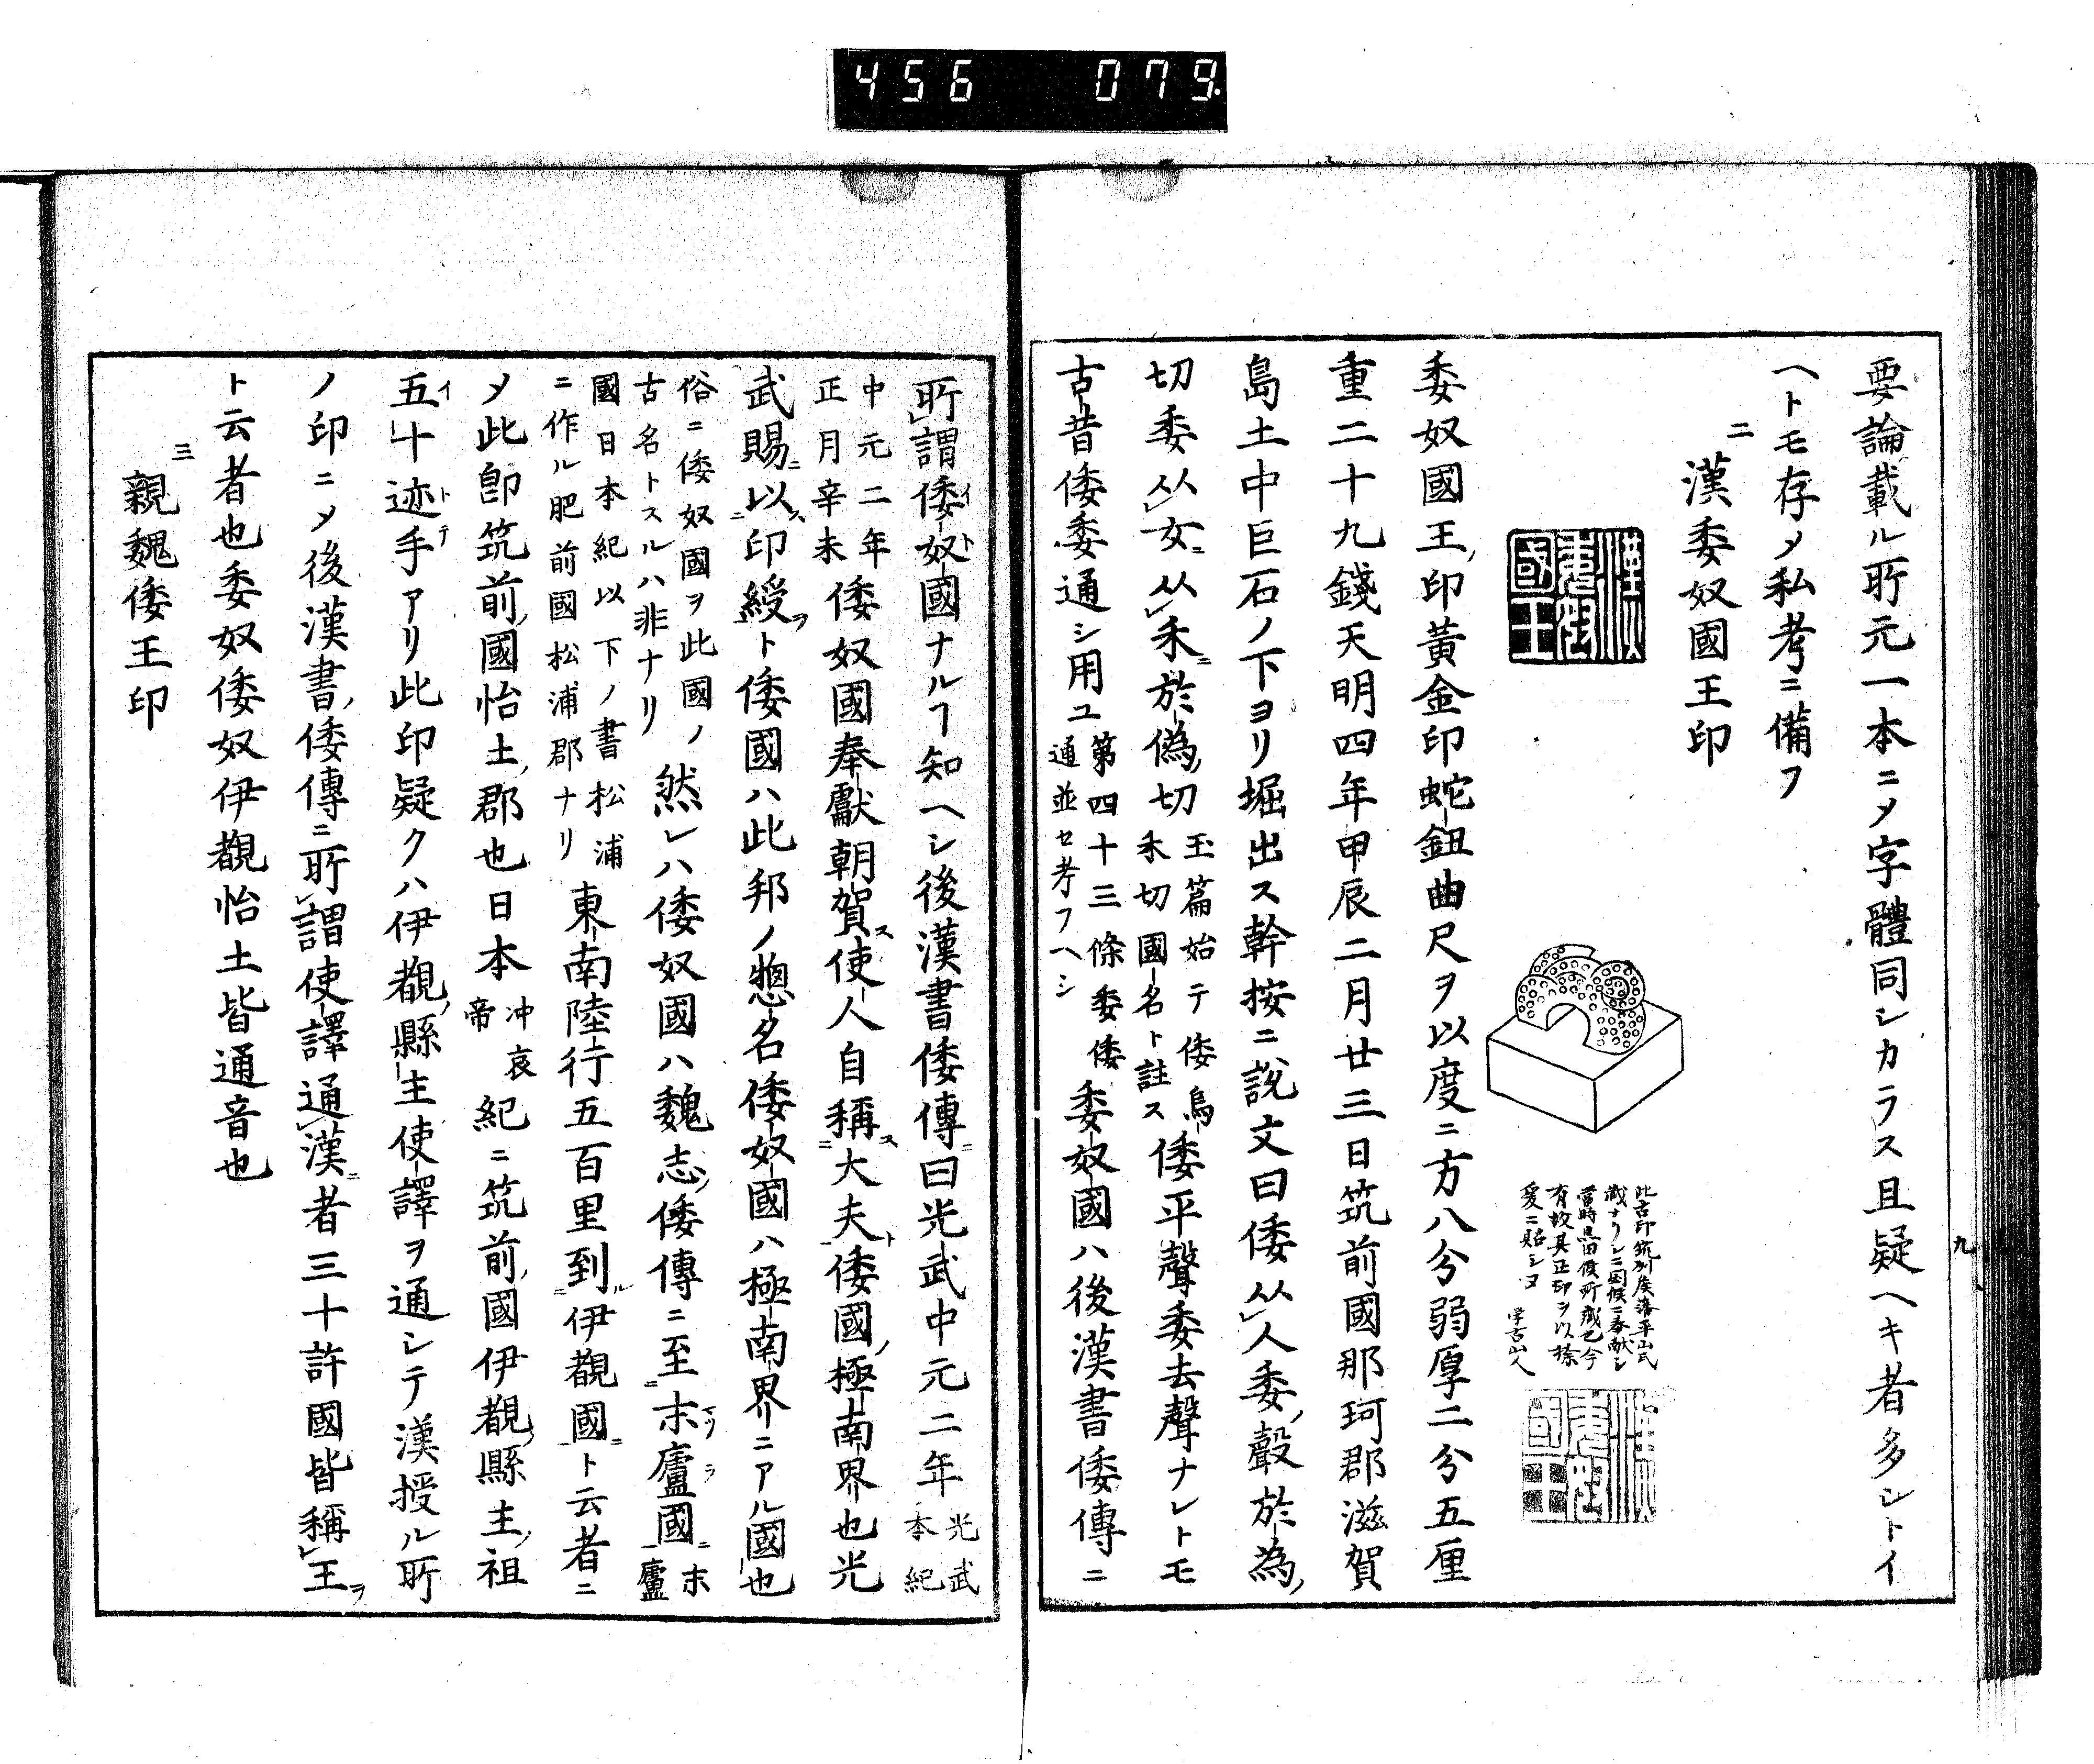 456 079.
要論載ル所元一本ニメ字體同シカラス且疑ヘキ者多シトイ
ヘトモ存メ私考ニ備フ
二
漢委奴國王印
漢委奴國王
此古印筑州
藏ナリシニ國候ニ奉献シ
當時黒田候所藏也今
有故其正印ヲ以搽
爰ニ貼シヌ
漢委奴國王
委奴國王ノ印黃金印蛇鈕曲尺ヲ以度ニ方八分弱厚二分五厘
重二十九錢天明四年甲辰二月廿三日筑前國那珂郡滋賀
島土中巨石ノ下ヨリ堀出ス幹按ニ説文曰倭从人委ノ聲於為ノ
切委从女ニ从禾ニ於偽ノ切
玉篇始テ倭烏
禾切國名ト註ス
倭平聲委去聲ナレトモ
古昔倭委通シ用ユ
第四十三條委倭
通並セ考フヘシ
委奴國ハ後漢書倭傳ニ
九
所謂倭イ奴ト國ナルヿ知ヘシ後漢書倭傳ニ曰光武中元二年
光武
本紀
中元二年
正月辛未
倭奴國奉獻朝賀ス使人自稱ス大夫ト倭國ノ極南界也光
武賜ニ以ス印綬ヲト倭國ハ此邦ノ惣名倭奴國ハ極南界ニアル國也
俗ニ倭奴國ヲ此國ノ
古名トスルハ非ナリ
然レハ倭奴國ハ魏志ノ倭傳ニ至末マツ廬ラ國ニ
末
廬
國日本紀以下ノ書松浦
ニ作ル肥前國松浦郡ナリ
東南陸行五百里到ル伊覩國ニト云者ニ
メ此卽筑前ノ國怡土ノ郡也日本
冲哀
帝
紀ニ筑前ノ國伊覩ノ縣主ノ祖
五イ十迹ト手テアリ此印疑クハ伊覩ノ縣主使譯ヲ通シテ漢授ル所
ノ印ニメ後漢書ノ倭傳ニ所謂使譯通漢ニ者三十許國皆稱王ヲ
ト云者也委奴倭奴伊覩怡土皆通音也
三
親魏倭王印